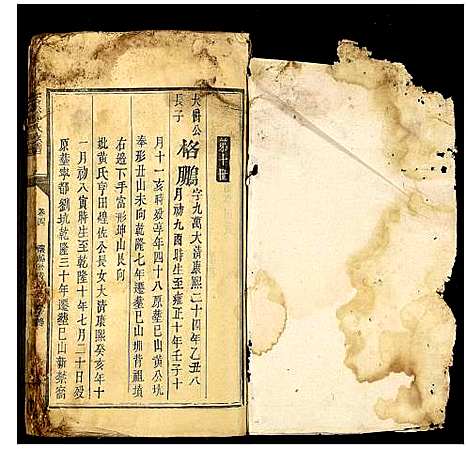 第十世
大爵公
長子
格鵬
字九萬大清康熙二十四年乙丑八
月初九酉時生至雍正十年壬子十
月十一亥時歿享年四十八原墓巳山黄公坑
奉形丑山未向乾隆七年遷墓巳山圳背祖墳
右邊下手富形坤山艮向
妣黄氏亨田煌佐公長女大清康熙癸亥年十
一月初八寅時生至乾隆十年七月二十日歿
原墓寧都劉坑乾隆三十年遷墓巳山新
卷四